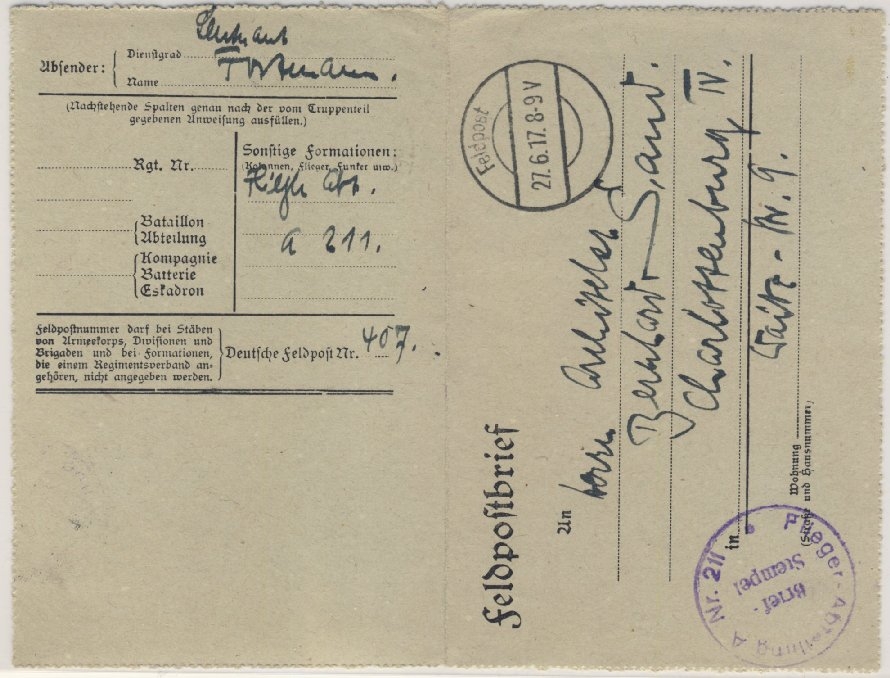 Absender:
Dienstgrad Leutnant
Name
(Nachstehende Spalten genau nach der vom Truppenteil
gegebenen Anweisung ausfüllen.)
Rgt. Nr.
Bataillon
Abteilung
Kompagnie
Batterie
Eskadron
Sonstige Formationen:
(Kolonnen, Flieger, Funker usw.)
Flieger Abt.
A 211.
Feldpostnummer darf bei Stäben
von Armeekorps, Divisionen und
Brigaden und bei Formationen,
die einem Regimentsverband an-
gehören, nicht angegeben werden.
Deutsche Feldpost Nr. 407.
Feldpost
27.6.17. 8-9 V
Feldpostbrief
An Herrn Architekt
Bernhard Sand.
Charlottenburg IV.
in
Nr. 9.
Wohnung
(Straße und Hausnummer)
Flieger-Abteilung A Nr. 211
Brief-
Stempel